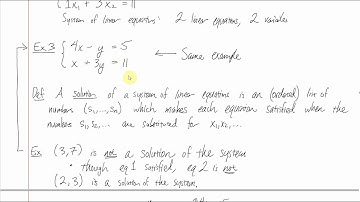 {x₁ + 3x₂ = 11
System of linear equations: 2 linear equations, 2 variables
Ex 3 {4x - y = 5
x + 3y = 11
← Same example
Def A solution of a system of linear equations is an (ordered) list of
numbers (s₁,...,sₙ) which makes each equation satisfied when the
numbers s₁,s₂,... are substituted for x₁,x₂,...
Ex (3,7) is not a solution of the system
• though eq 1 satisfied, eq 2 is not
(2,3) is a solution of the system.